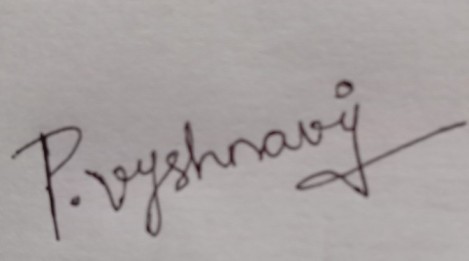 P. vyshnavi